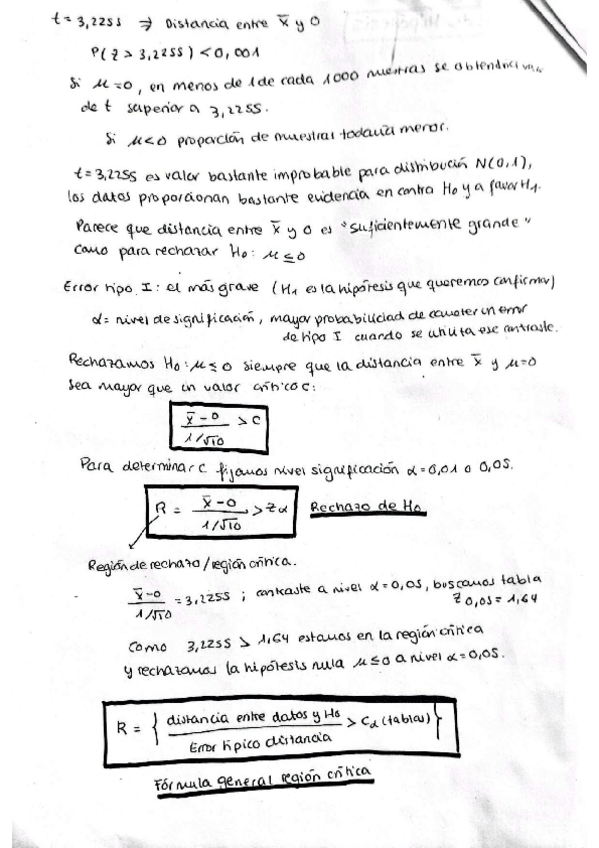 t = 3,2255 ⇒ Distancia entre x̄ y 0
P(z > 3,2255) < 0,001
Si μ = 0, en menos de 1 de cada 1000 muestras se obtendría un
de t superior a 3,2255.
Si μ<0 proporción de muestras todavía menor.
t = 3,2255 es valor bastante improbable para distribución N(0,1),
los datos proporcionan bastante evidencia en contra H0 y a favor H1.
Parece que distancia entre x̄ y 0 es "suficientemente grande"
como para rechazar H0: μ ≤ 0
Error tipo I: el más grave (H1 es la hipótesis que queremos confirmar)
α = nivel de significación, mayor probabilidad de cometer un error
de tipo I cuando se utiliza ese contraste.
Rechazamos H0: μ ≤ 0 siempre que la distancia entre x̄ y μ=0
sea mayor que un valor crítico c:
x̄ - 0 / 1/√10 > c
Para determinar c fijamos nivel significación α = 0,01 o 0,05.
R = x̄ - 0 / 1/√10 > zα Rechazo de H0
Región de rechazo/región crítica.
x̄-0 / 1/√10 = 3,2255 ; contraste a nivel α = 0,05, buscamos tabla
z0,05 = 1,64
Como 3,2255 > 1,64 estamos en la región crítica
y rechazamos la hipótesis nula μ ≤ 0 a nivel α = 0,05.
R = { distancia entre datos y H0 / Error típico distancia > Cα (tablas) }
Fórmula general región crítica